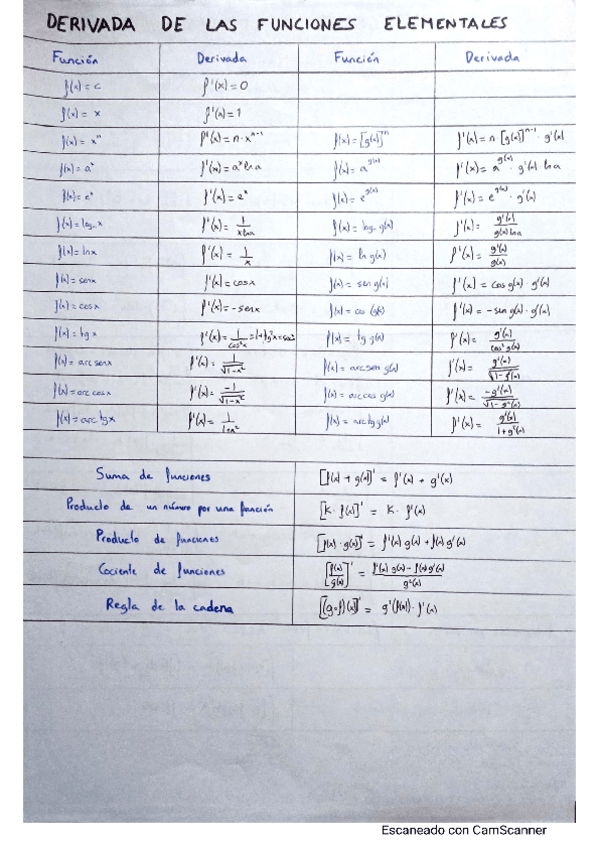 DERIVADA DE LAS FUNCIONES ELEMENTALES
Función Derivada Función Derivada
f(x) = c f'(x) = 0
f(x) = x f'(x) = 1
f(x) = xⁿ f'(x) = n·xⁿ⁻¹ f(x) = [g(x)]ⁿ f'(x) = n [g(x)]ⁿ⁻¹ · g'(x)
f(x) = aˣ f'(x) = aˣ ln a f(x) = a^g(x) f'(x) = a^g(x) · g'(x) · ln a
f(x) = eˣ f'(x) = eˣ f(x) = e^g(x) f'(x) = e^g(x) · g'(x)
f(x) = logₐ x f'(x) = 1/(x ln a) f(x) = logₐ g(x) f'(x) = g'(x)/(g(x) ln a)
f(x) = ln x f'(x) = 1/x f(x) = ln g(x) f'(x) = g'(x)/g(x)
f(x) = sen x f'(x) = cos x f(x) = sen g(x) f'(x) = cos g(x) · g'(x)
f(x) = cos x f'(x) = -sen x f(x) = cos g(x) f'(x) = -sen g(x) · g'(x)
f(x) = tg x f'(x) = 1/cos²x = 1+tg²x = sec² f(x) = tg g(x) f'(x) = g'(x)/cos² g(x)
f(x) = arc sen x f'(x) = 1/√(1-x²) f(x) = arc sen g(x) f'(x) = g'(x)/
f(x) = arc cos x f'(x) = -1/√(1-x²) f(x) = arc cos g(x) f'(x) = -g'(x)/√(1-g²(x))
f(x) = arc tg x f'(x) = 1/(1+x²) f(x) = arc tg g(x) f'(x) = g'(x)/(1+g²(x))
Suma de funciones [f(x) + g(x)]' = f'(x) + g'(x)
Producto de un número por una función [K · f(x)]' = K · f'(x)
Producto de funciones [f(x) · g(x)]' = f'(x) g(x) + f(x) g'(x)
Cociente de funciones [f(x)/g(x)]' = (f'(x) g(x) - f(x) g'(x))/g²(x)
Regla de la cadena [(g∘f)(x)]' = g'(f(x)) · f'(x)
Escaneado con CamScanner